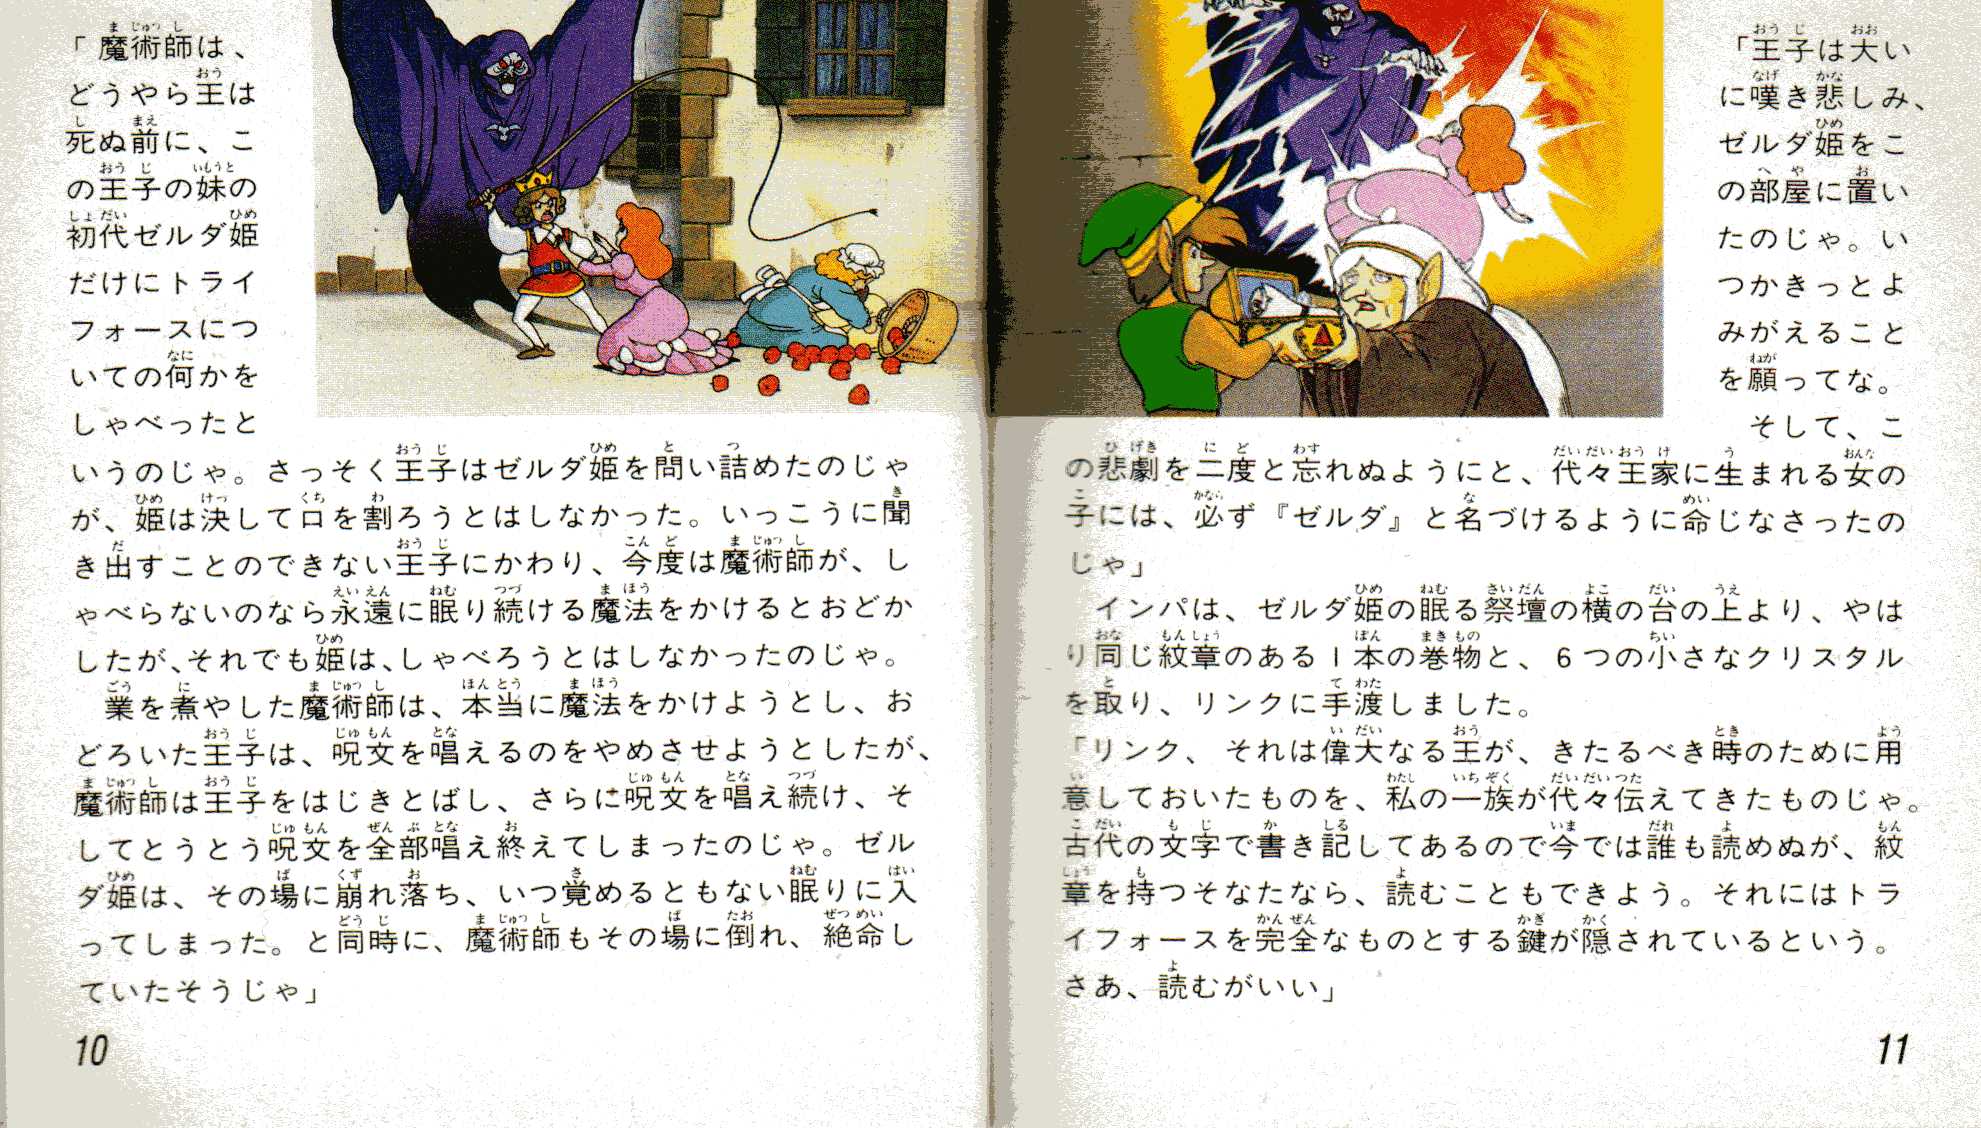 「魔術師は、
どうやら王は
死ぬ前に、こ
の王子の妹の
初代ゼルダ姫
だけにトライ
フォースにつ
いての何かを
しゃべったと
いうのじゃ。さっそく王子はゼルダ姫を問い詰めたのじゃ
が、姫は決して口を割ろうとはしなかった。いっこうに聞
き出すことのできない王子にかわり、今度は魔術師が、し
ゃべらないのなら永遠に眠り続ける魔法をかけるとおどか
したが、それでも姫は、しゃべろうとはしなかったのじゃ。
業を煮やした魔術師は、本当に魔法をかけようとし、お
どろいた王子は、呪文を唱えるのをやめさせようとしたが、
魔術師は王子をはじきとばし、さらに呪文を唱え続け、そ
してとうとう呪文を全部唱え終えてしまったのじゃ。ゼル
ダ姫は、その場に崩れ落ち、いつ覚めるともない眠りに入
ってしまった。と同時に、魔術師もその場に倒れ、絶命し
ていたそうじゃ」
10
「王子は大い
に嘆き悲しみ、
ゼルダ姫をこ
の部屋に置い
たのじゃ。い
つかきっとよ
みがえること
を願ってな。
そして、こ
の悲劇を二度と忘れぬようにと、代々王家に生まれる女の
子には、必ず『ゼルダ』と名づけるように命じなさったの
じゃ」
インパは、ゼルダ姫の眠る祭壇の横の台の上より、やは
り同じ紋章のある1本の巻物と、6つの小さなクリスタル
を取り、リンクに手渡しました。
「リンク、それは偉大なる王が、きたるべき時のために用
意しておいたものを、私の一族が代々伝えてきたものじゃ。
古代の文字で書き記してあるので今では誰も読めぬが、紋
章を持つそなたなら、読むこともできよう。それにはトラ
イフォースを完全なものとする鍵が隠されているという。
さあ、読むがいい」
11